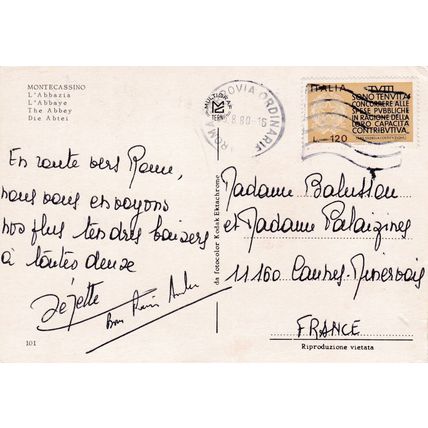 MONTECASSINO
L'Abbazia
L'Abbaye
The Abbey
Die Abtei
En route vers Rome,
nous vous envoyons
nos plus tendres baisers
à toutes deux
Zézette
101
da fotocolor Kodak Ektachrome
MULTIGRAF
TERNI
ROMA FERROVIA ORDINARIE
8.80-16
ITALIA
TUTTI
SONO TENUTI A
CONCORRERE ALLE
SPESE PUBBLICHE
IN RAGIONE DELLA
LORO CAPACITÀ
CONTRIBUTIVA.
L. 120
Madame Balussou
et Madame Palaizines
11160 Caunes-Minervois
FRANCE
Riproduzione vietata